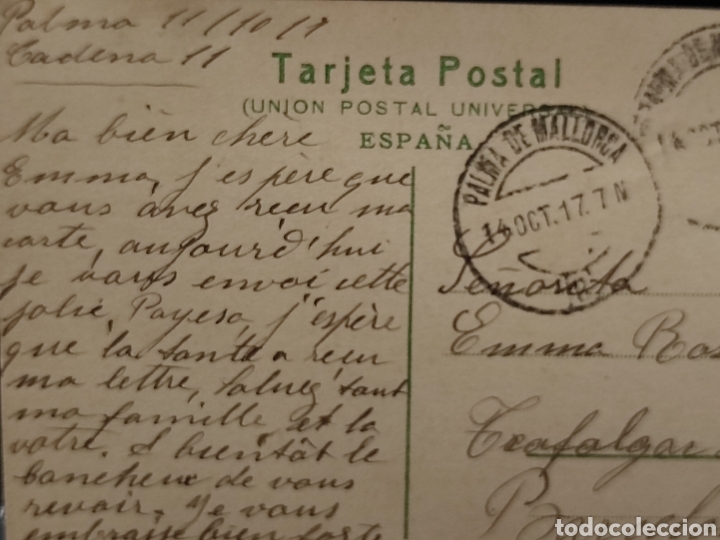 Palma 11/10/17
Cadena 11
Tarjeta Postal
(UNION POSTAL UNIVERSAL)
ESPAÑA
Ma bien chère
Emma, j'espère que
vous avez reçu ma
carte, aujourd'hui
je vous envoi cette
jolie Payesa, j'espère
que la tante a reçu
ma lettre, saluez tout
ma famille et la
votre. A bientôt le
de vous
revoir. Je vous
embraise bien forte
PALMA DE MALLORCA
14 OCT. 17. 7 N
PALMA DE M
14 OCT
Señorita
Emma Ros
Trafalgar
Barcel
todocoleccion.net